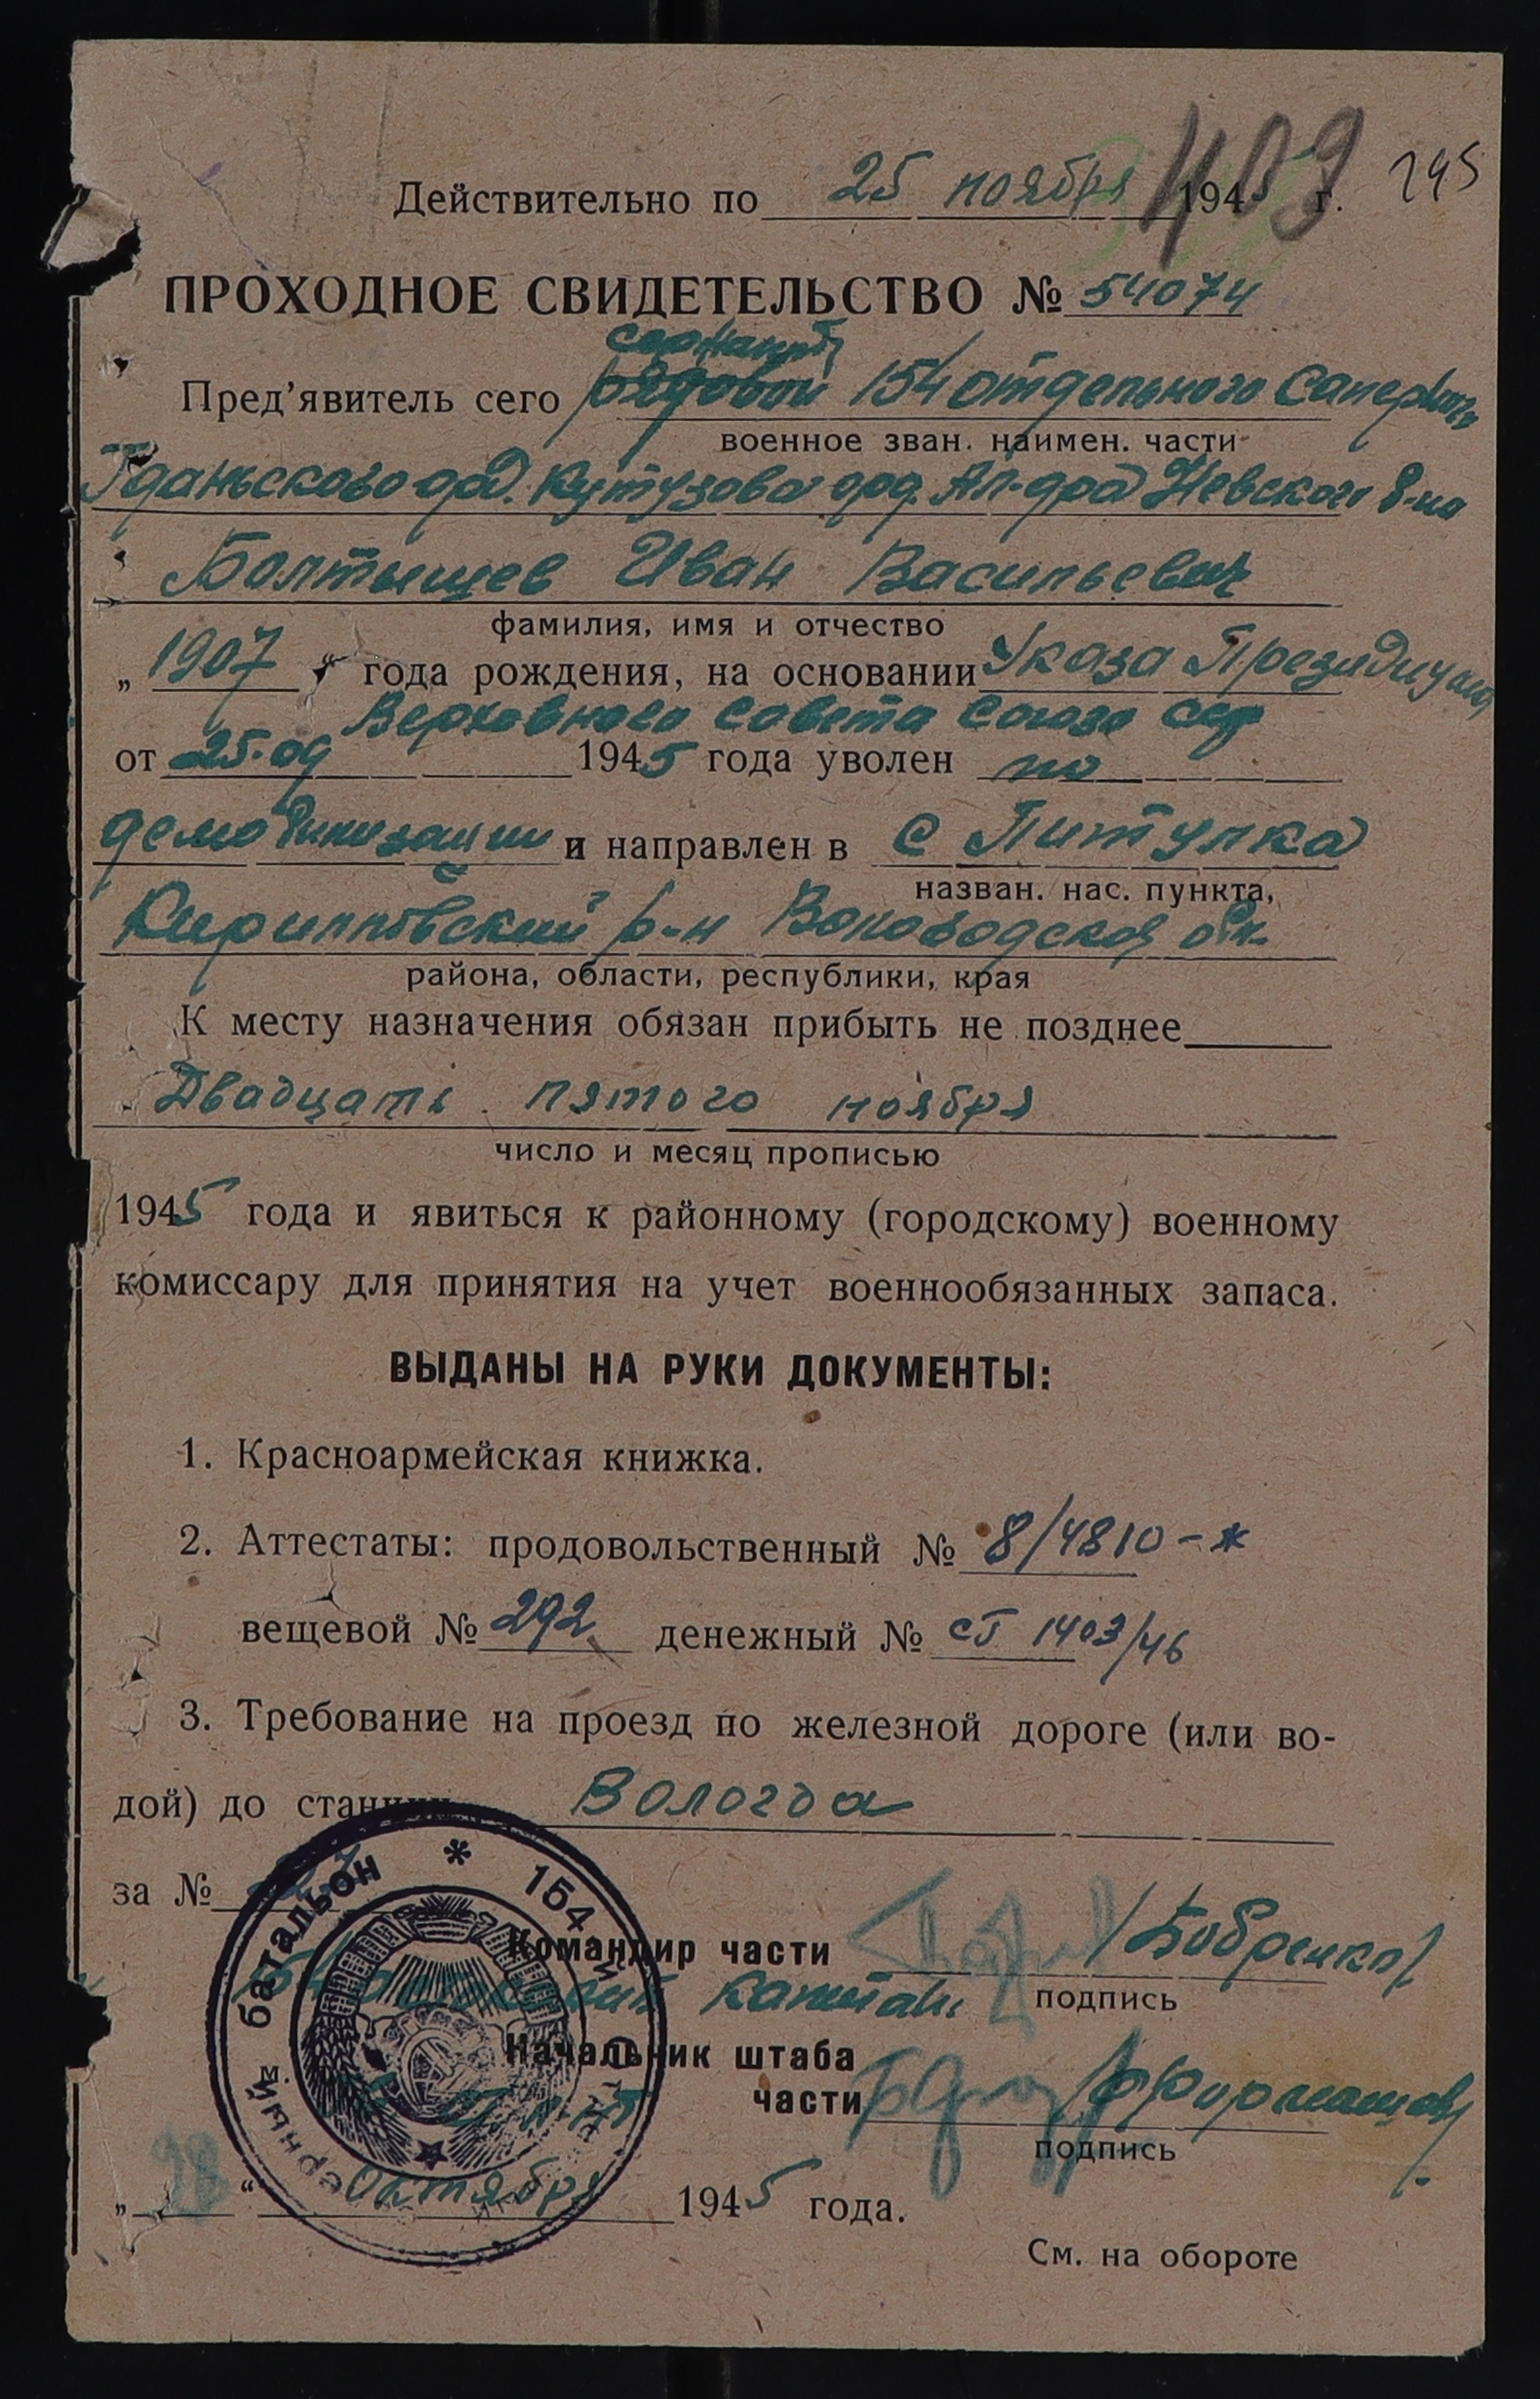 409 295
Действительно по 25 ноября 1945 г.
ПРОХОДНОЕ СВИДЕТЕЛЬСТВО № 54074
сержант
Пред'явитель сего рядовой 154 отдельного Саперного
военное зван. наимен. части
Гданьского орд. Кутузова орд. Ал-дра Невского б-на
Болтышев Иван Васильевич
фамилия, имя и отчество
„ 1907 “ года рождения, на основании Указа Президиума
Верховного Совета Союза ССР
от 25.09 1945 года уволен по
демобилизации и направлен в с Питулка
назван. нас. пункта,
Кирилловский р-н Вологодской обл.
района, области, республики, края
К месту назначения обязан прибыть не позднее
Двадцать пятого ноября
число и месяц прописью
1945 года и явиться к районному (городскому) военному
комиссару для принятия на учет военнообязанных запаса.
ВЫДАНЫ НА РУКИ ДОКУМЕНТЫ:
1. Красноармейская книжка.
2. Аттестаты: продовольственный № 8/4810-ж
вещевой № 292 денежный № СТ 1403/46
3. Требование на проезд по железной дороге (или во-
дой) до станции Вологда
за №
батальон * 154
Командир части /Бобренко/
капитан подпись
Начальник штаба
части /Фурманов/
подпись
„ 28 “ октября 1945 года.
См. на обороте